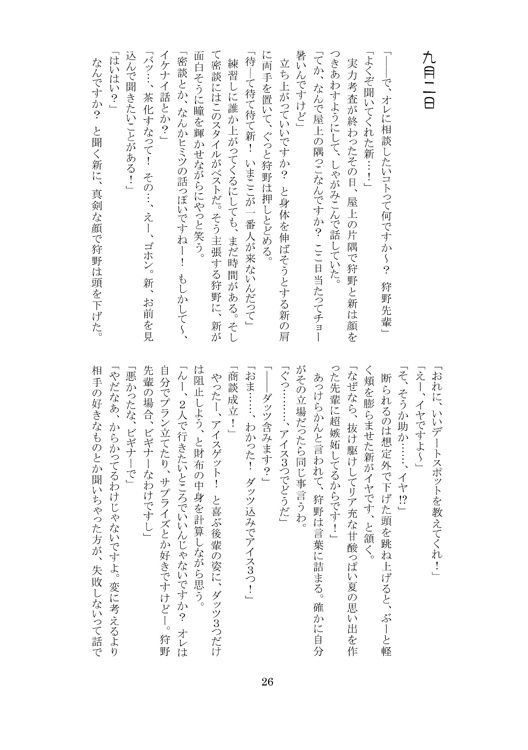 九月二日
「――で、オレに相談したいコトって何ですか～？　狩野先輩」
「よくぞ聞いてくれた新…！」
　実力考査が終わったその日、屋上の片隅で狩野と新は顔を
つきあわすようにして、しゃがみこんで話していた。
「てか、なんで屋上の隅っこなんですか？　ここ日当たってチョー
暑いんですけど」
　立ち上がっていいですか？　と身体を伸ばそうとする新の肩
に両手を置いて、ぐっと狩野は押しとどめる。
「待―て待て待て新！　いまここが一番人が来ないんだって」
　練習しに誰か上がってくるにしても、まだ時間がある。そし
て密談にはこのスタイルがベストだ。そう主張する狩野に、新が
面白そうに瞳を輝かせながらにやっと笑う。
「密談とか、なんかヒミツの話っぽいですねー！　もしかして～、
イケナイ話とか？」
「バッ…、茶化すなって！　その…、えー、ゴホン。新、お前を見
込んで聞きたいことがある！」
「はいはい？」
　なんですか？　と聞く新に、真剣な顔で狩野は頭を下げた。
「おれに、いいデートスポットを教えてくれ！」
「えー、イヤですよ～」
「そ、そうか助か……、イヤ!?」
　断られるのは想定外で下げた頭を跳ね上げると、ぷーと軽
く頬を膨らませた新がイヤです、と頷く。
「なぜなら、抜け駆けしてリア充な甘酸っぱい夏の思い出を作
った先輩に超嫉妬してるからです！」
　あっけらかんと言われて、狩野は言葉に詰まる。確かに自分
がその立場だったら同じ事言うわ。
「ぐっ………、アイス３つでどうだ」
「――ダッツ含みます？」
「おま……、わかった！　ダッツ込みでアイス３つ！」
「商談成立！」
　やったー、アイスゲット！　と喜ぶ後輩の姿に、ダッツ３つだけ
は阻止しよう、と財布の中身を計算しながら思う。
「んー、２人で行きたいところでいいんじゃないですか？　オレは
自分でプラン立てたり、サプライズとか好きですけどー。狩野
先輩の場合、ビギナーなわけですし」
「悪かったな、ビギナーで」
「やだなあ、からかってるわけじゃないですよ。変に考えるより
相手の好きなものとか聞いちゃった方が、失敗しないって話で
26